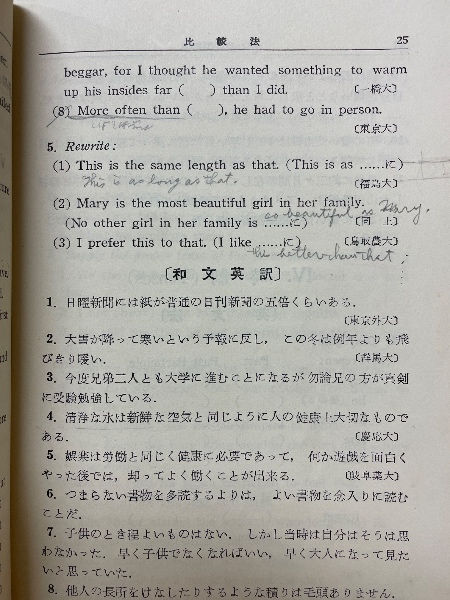 比較法 25
beggar, for I thought he wanted something to warm
up his insides far ( ) than I did. 〔一橋大〕
(8) More often than ( ), he had to go in person.
〔東京大〕
5. Rewrite:
(1) This is the same length as that. (This is as ……に)
This is as long as that. 〔福島大〕
(2) Mary is the most beautiful girl in her family.
so beautiful as Mary.
(No other girl in her family is ……に) 〔同 上〕
(3) I prefer this to that. (I like ……に) 〔鳥取農大〕
the better than that
〔和文英訳〕
1. 日曜新聞には紙が普通の日刊新聞の五倍くらいある。
〔東京外大〕
2. 大雪が降って寒いという予報に反し, この冬は例年よりも飛
びきり暖い. 〔群馬大〕
3. 今度兄弟二人とも大学に進むことになるが勿論兄の方が真剣
に受験勉強している.
4. 清浄な水は新鮮な空気と同じように人の健康上大切なもので
ある. 〔慶応大〕
5. 娯楽は労働と同じく健康に必要であって, 何か遊戯を面白く
やった後では, 却ってよく働くことが出来る. 〔岐阜薬大〕
6. つまらない書物を多読するよりは, よい書物を念入りに読む
ことだ.
7. 子供のとき程よいものはない. しかし当時は自分はそうは思
わなかった. 早く子供でなくなればいい, 早く大人になって見た
いと思っていた.
8. 他人の長所をけなしたりするような積りは毛頭ありません.